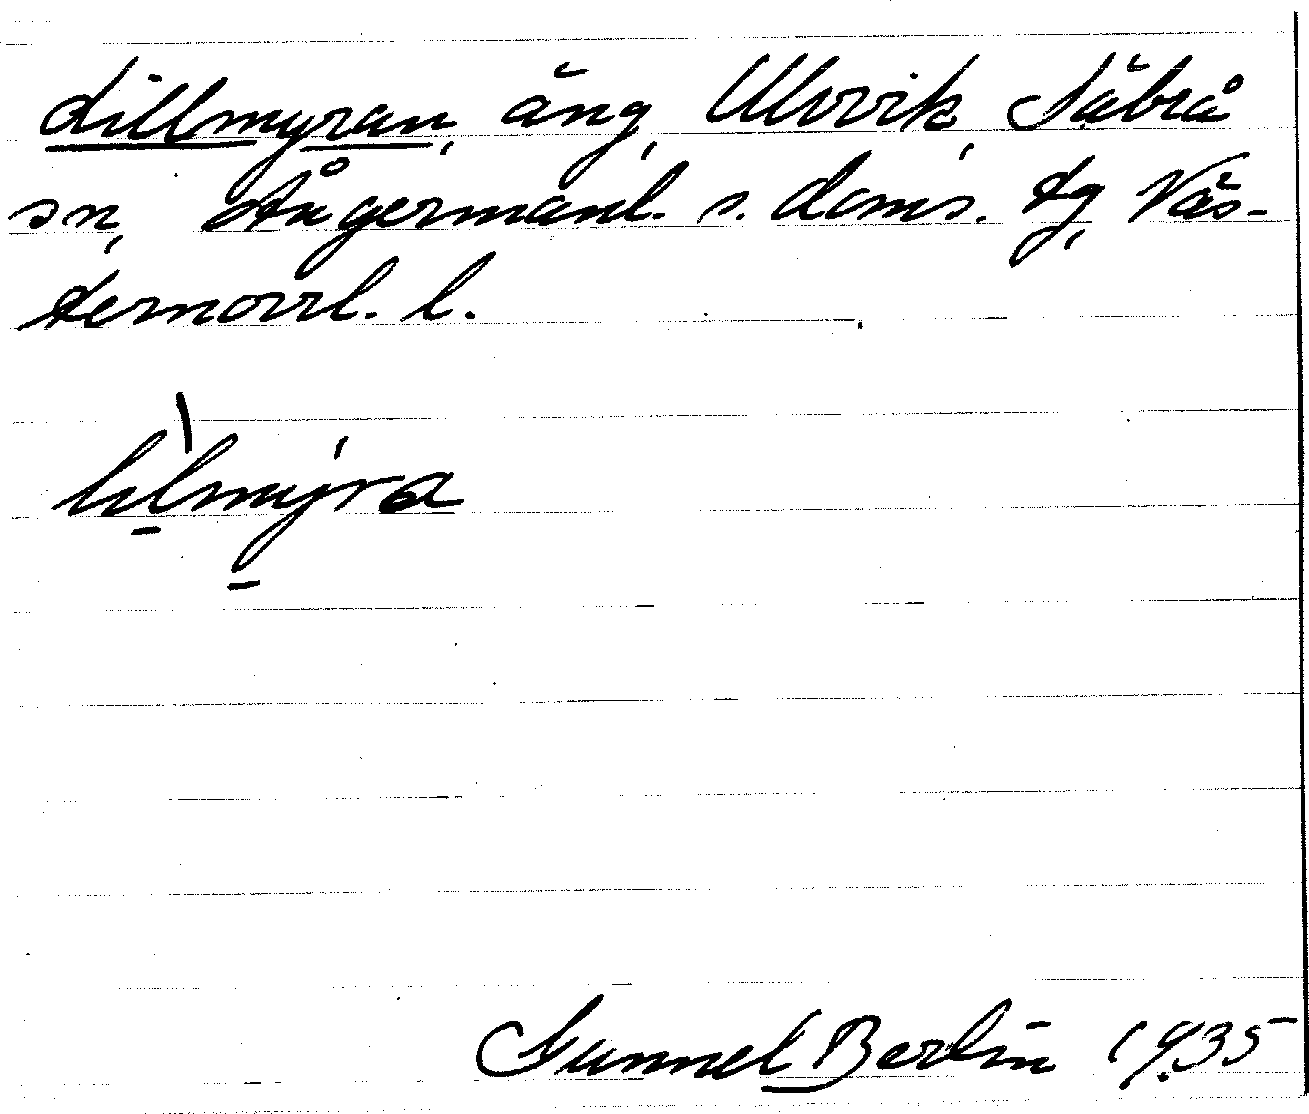 Lillmyran, äng, Ulvvik, Säbrå
sn, Ångermanl. s. doms. tg, Väs-
ternorrl. l.
lìlmy̍ra
Gunnel Berlin 1935